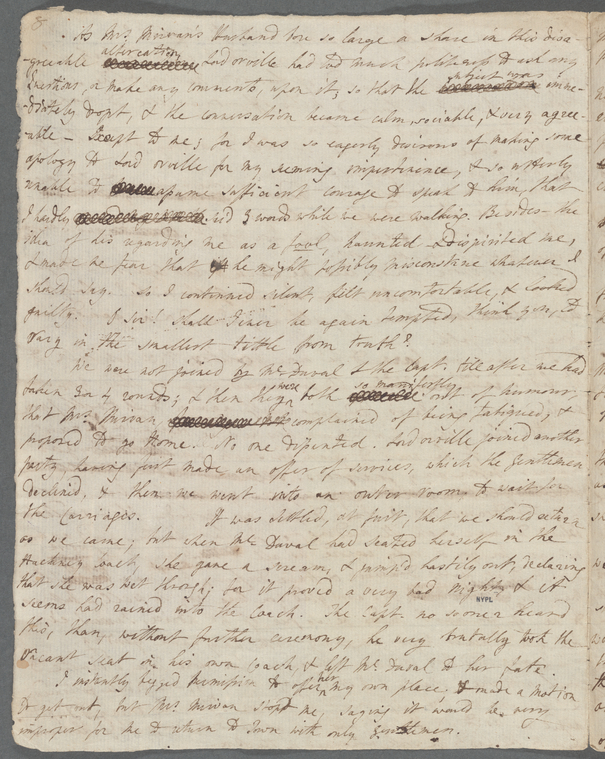 8
As Mrs. Mirvan's Husband bore so large a share in this disa-
-greeable altercation, Lord orville had too much politeness to ask any
Questions, or make any comments, upon it; so that the subject was imme-
-diately dropt, & the conversation became calm, sociable, & very agree-
-able – Except to me; for I was so eagerly desirous of making some
apology to Lord orville for my seeming impertinence, & so utterly
unable to assume sufficient courage to speak to him, that
I hardly said 3 words while we were walking. Besides the
idea of his regarding me as a fool, haunted & dispirited me,
& made me fear that he might possibly misconstrue whatever I
should say. So I continued silent, felt uncomfortable, & looked
guilty. O Sir! Shall I ever be again tempted, think you, to
vary in the smallest tittle from truth?
We were not joined by Me Duval & the Capt. till after we had
taken 3 or 4 rounds; & then they were both so manifestly out of humour,
that Mrs. Mirvan complained of being fatigued, &
proposed to go Home. No one Dissented. Lord orville joined another
party, having first made an offer of services, which the Gentlemen
Declined, & then we went into an outer room to wait for
the Carriages. It was settled, at first, that we should return
as we came; but when Me Duval had seated herself in the
Hackney Coach, she gave a scream, & jump'd hastily out, declaring
that she was wet through; for it proved a very bad Night, & it
seems had rained into the Coach. The Capt. no sooner heard
this, than, without further ceremony, he very brutally took the
vacant seat in his own Coach, & left Me Duval to her fate.
I instantly begged permission to offer her my own place, & made a motion
to get out, but Mrs. Mirvan stopt me, saying it would be very
improper for me to return to Town with only Gentlemen.
NYPL